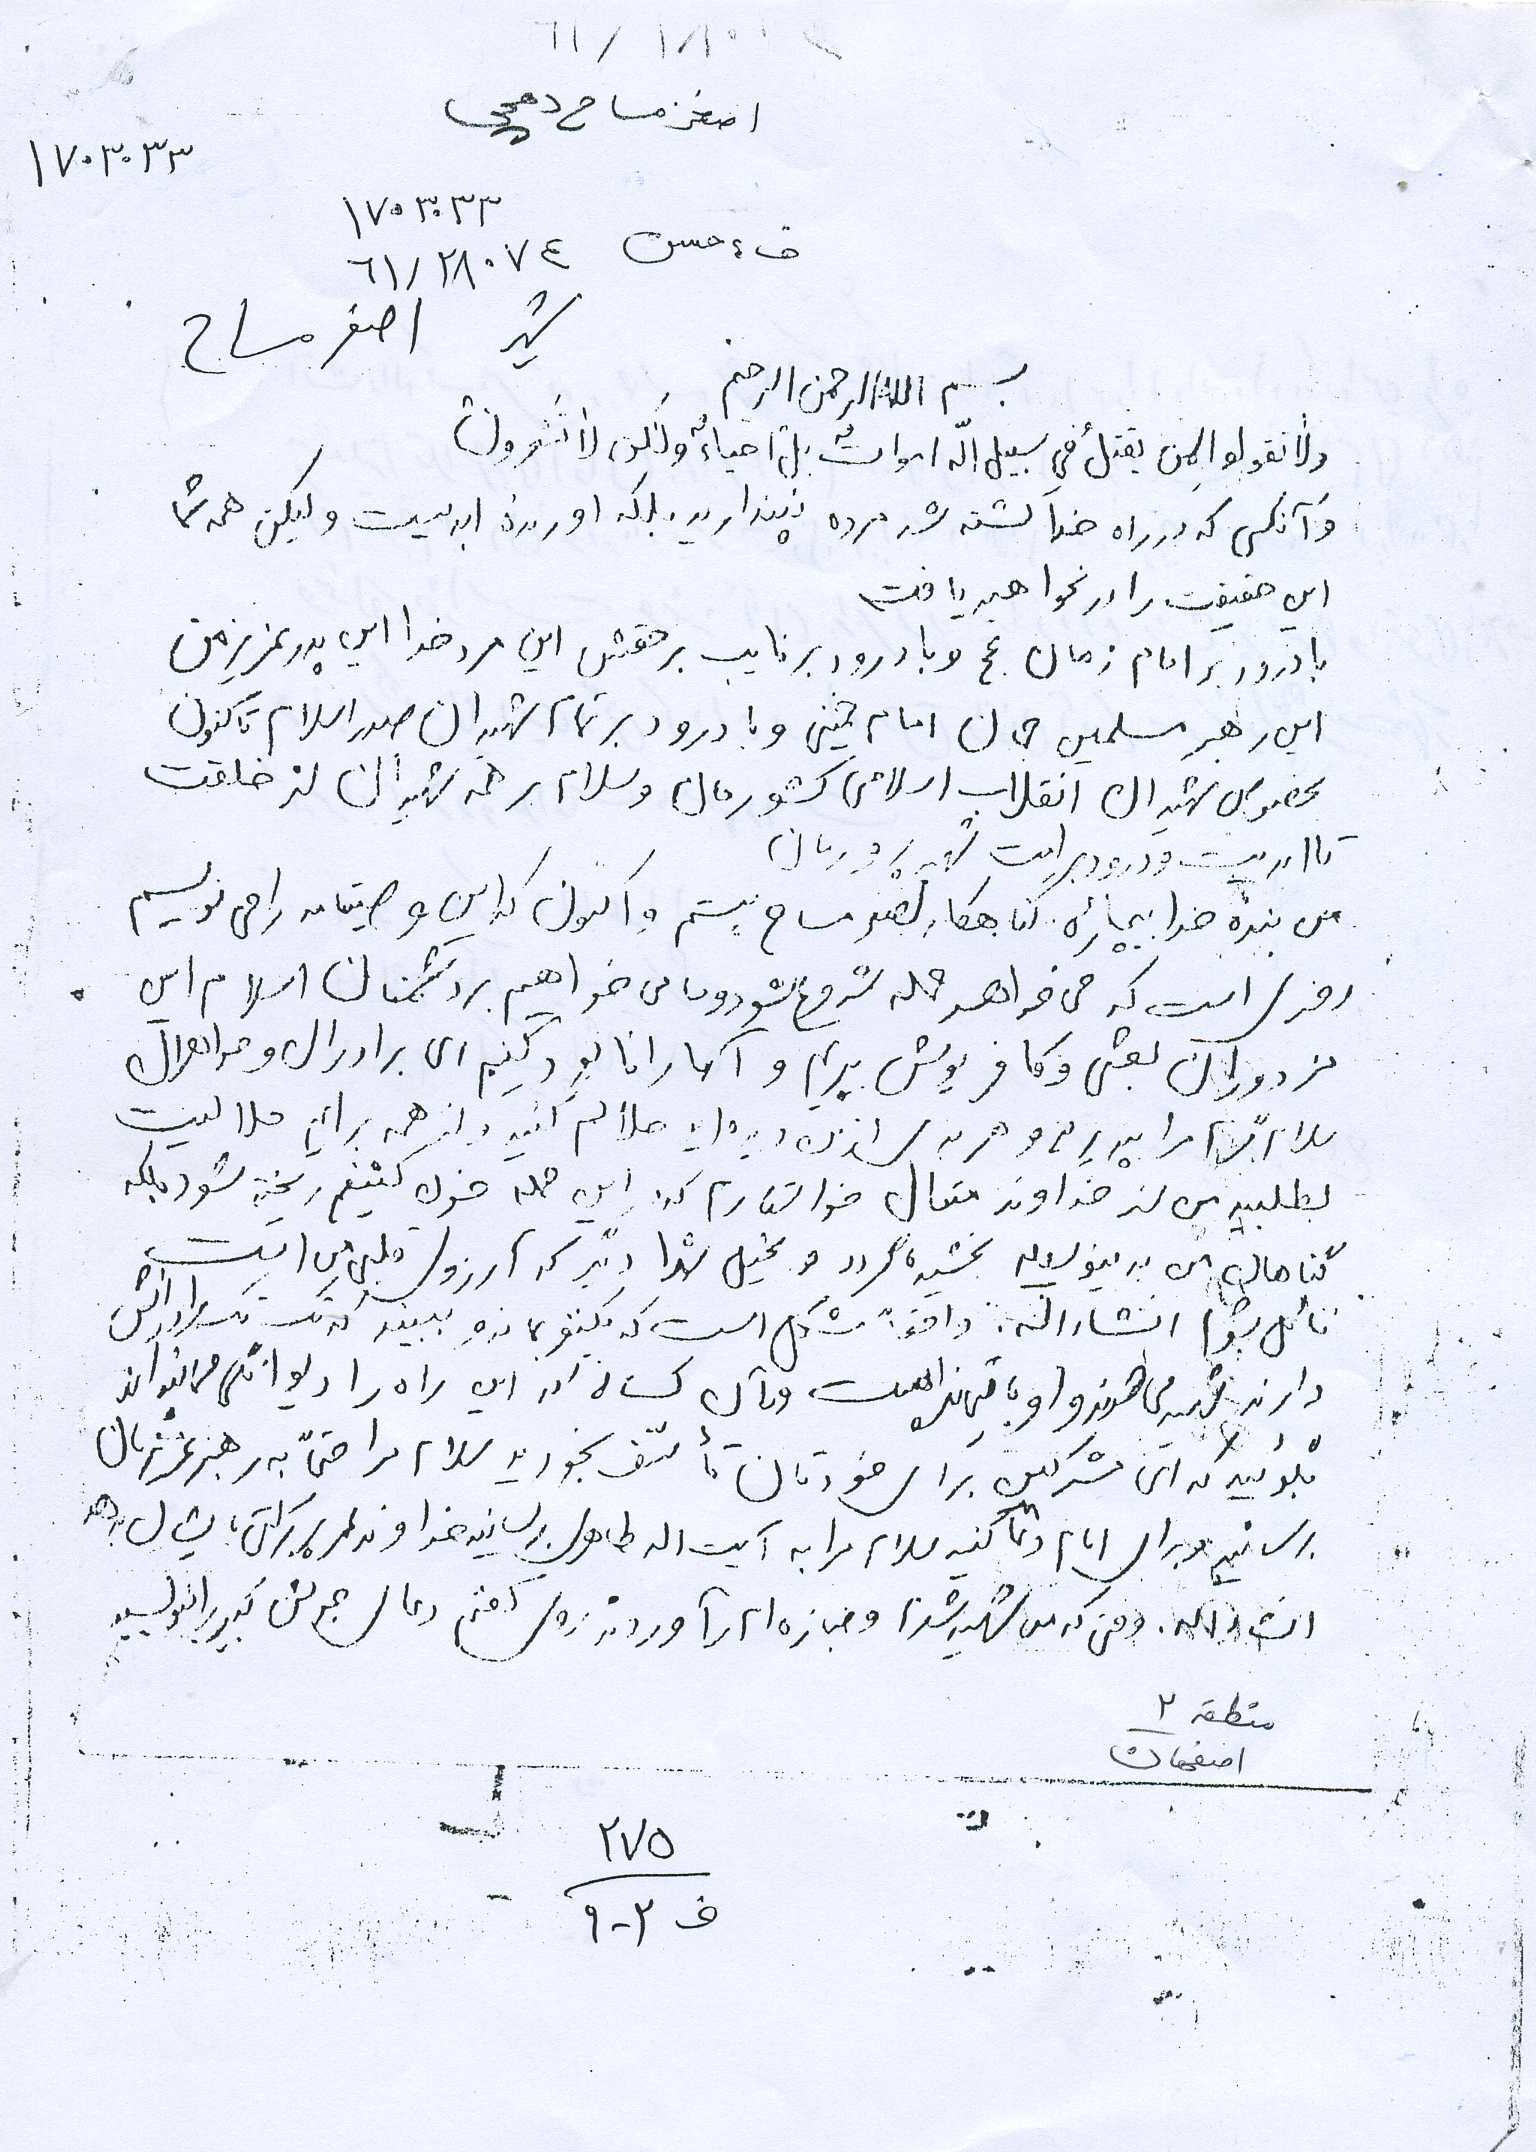 اصغر مساح
۱۷۰۳۰۳۳
۱۷۰۳۰۳۳
۶۱/۲۸۰۷۴
شهید اصغر مساح
بسم الله الرحمن الرحیم
ولا تقولو المن یقتل فی سبیل الله اموات بل احیاء ولکن لا تشعرون
و آنکس که در راه خدا کشته شد مرده نپندارید بلکه او زنده ابدیست و لیکن همه شما
این حقیقت را در نخواهید یافت
با درود بر امام زمان عج و با درود بر نایب بر حقش این مرد خدا این پدر عزیز من
این رهبر مسلمین جهان امام خمینی و با درود بر تمام شهیدان صدر اسلام تا کنون
بخصوص شهیدان انقلاب اسلامی کشورمان و سلام بر همه شهیدان از خلقت
تا ابدیت و درود بر امت شهید پرورمان
من بنده خدا بیچاره گناهکار اصغر مساح هستم و اکنون که این وصیتنامه را می نویسم
روزی است که می خواهد حمله شروع شود و ما می خواهیم بر دشمنان اسلام این
مزدوران بعثی و کافر یورش بریم و آنها را نابود کنیم ای برادران و خواهران
سلام مرا بپذیرید و هر بدی از من دیده اید حلالم کنید و از همه برایم حلالیت
بطلبید من از خداوند متعال خواستارم که در این حمله خون کثیفم ریخته شود بلکه
گناهان من بدینوسیله بخشیده گردد و بخیل شهدا دیگر که آرزوی قلبی من است
نائل شوم انشاء الله. واقعا مشکل است که یکنفر بماند و ببیند که تک تک برادرانش
دارند شهید می شوند و او باقی مانده است و آن کسانی که این راه را دیوانگی می دانند
بگوئید که ای مشرکین برای خودتان تأسف بخورید سلام مرا حتما به رهبر عزیزمان
برسانید و برای امام دعا کنید سلام مرا به آیت اله طاهری برسانید خداوند عمر پر برکتی بایشان بدهد
انشاء الله. وقتی که من شهید شدم و جنازه ام را آوردند روی کفنم دعای جوشن کبیر را بنویسید
منطقه ۲
اصفهان
۲۷۵
ف ۲-۹